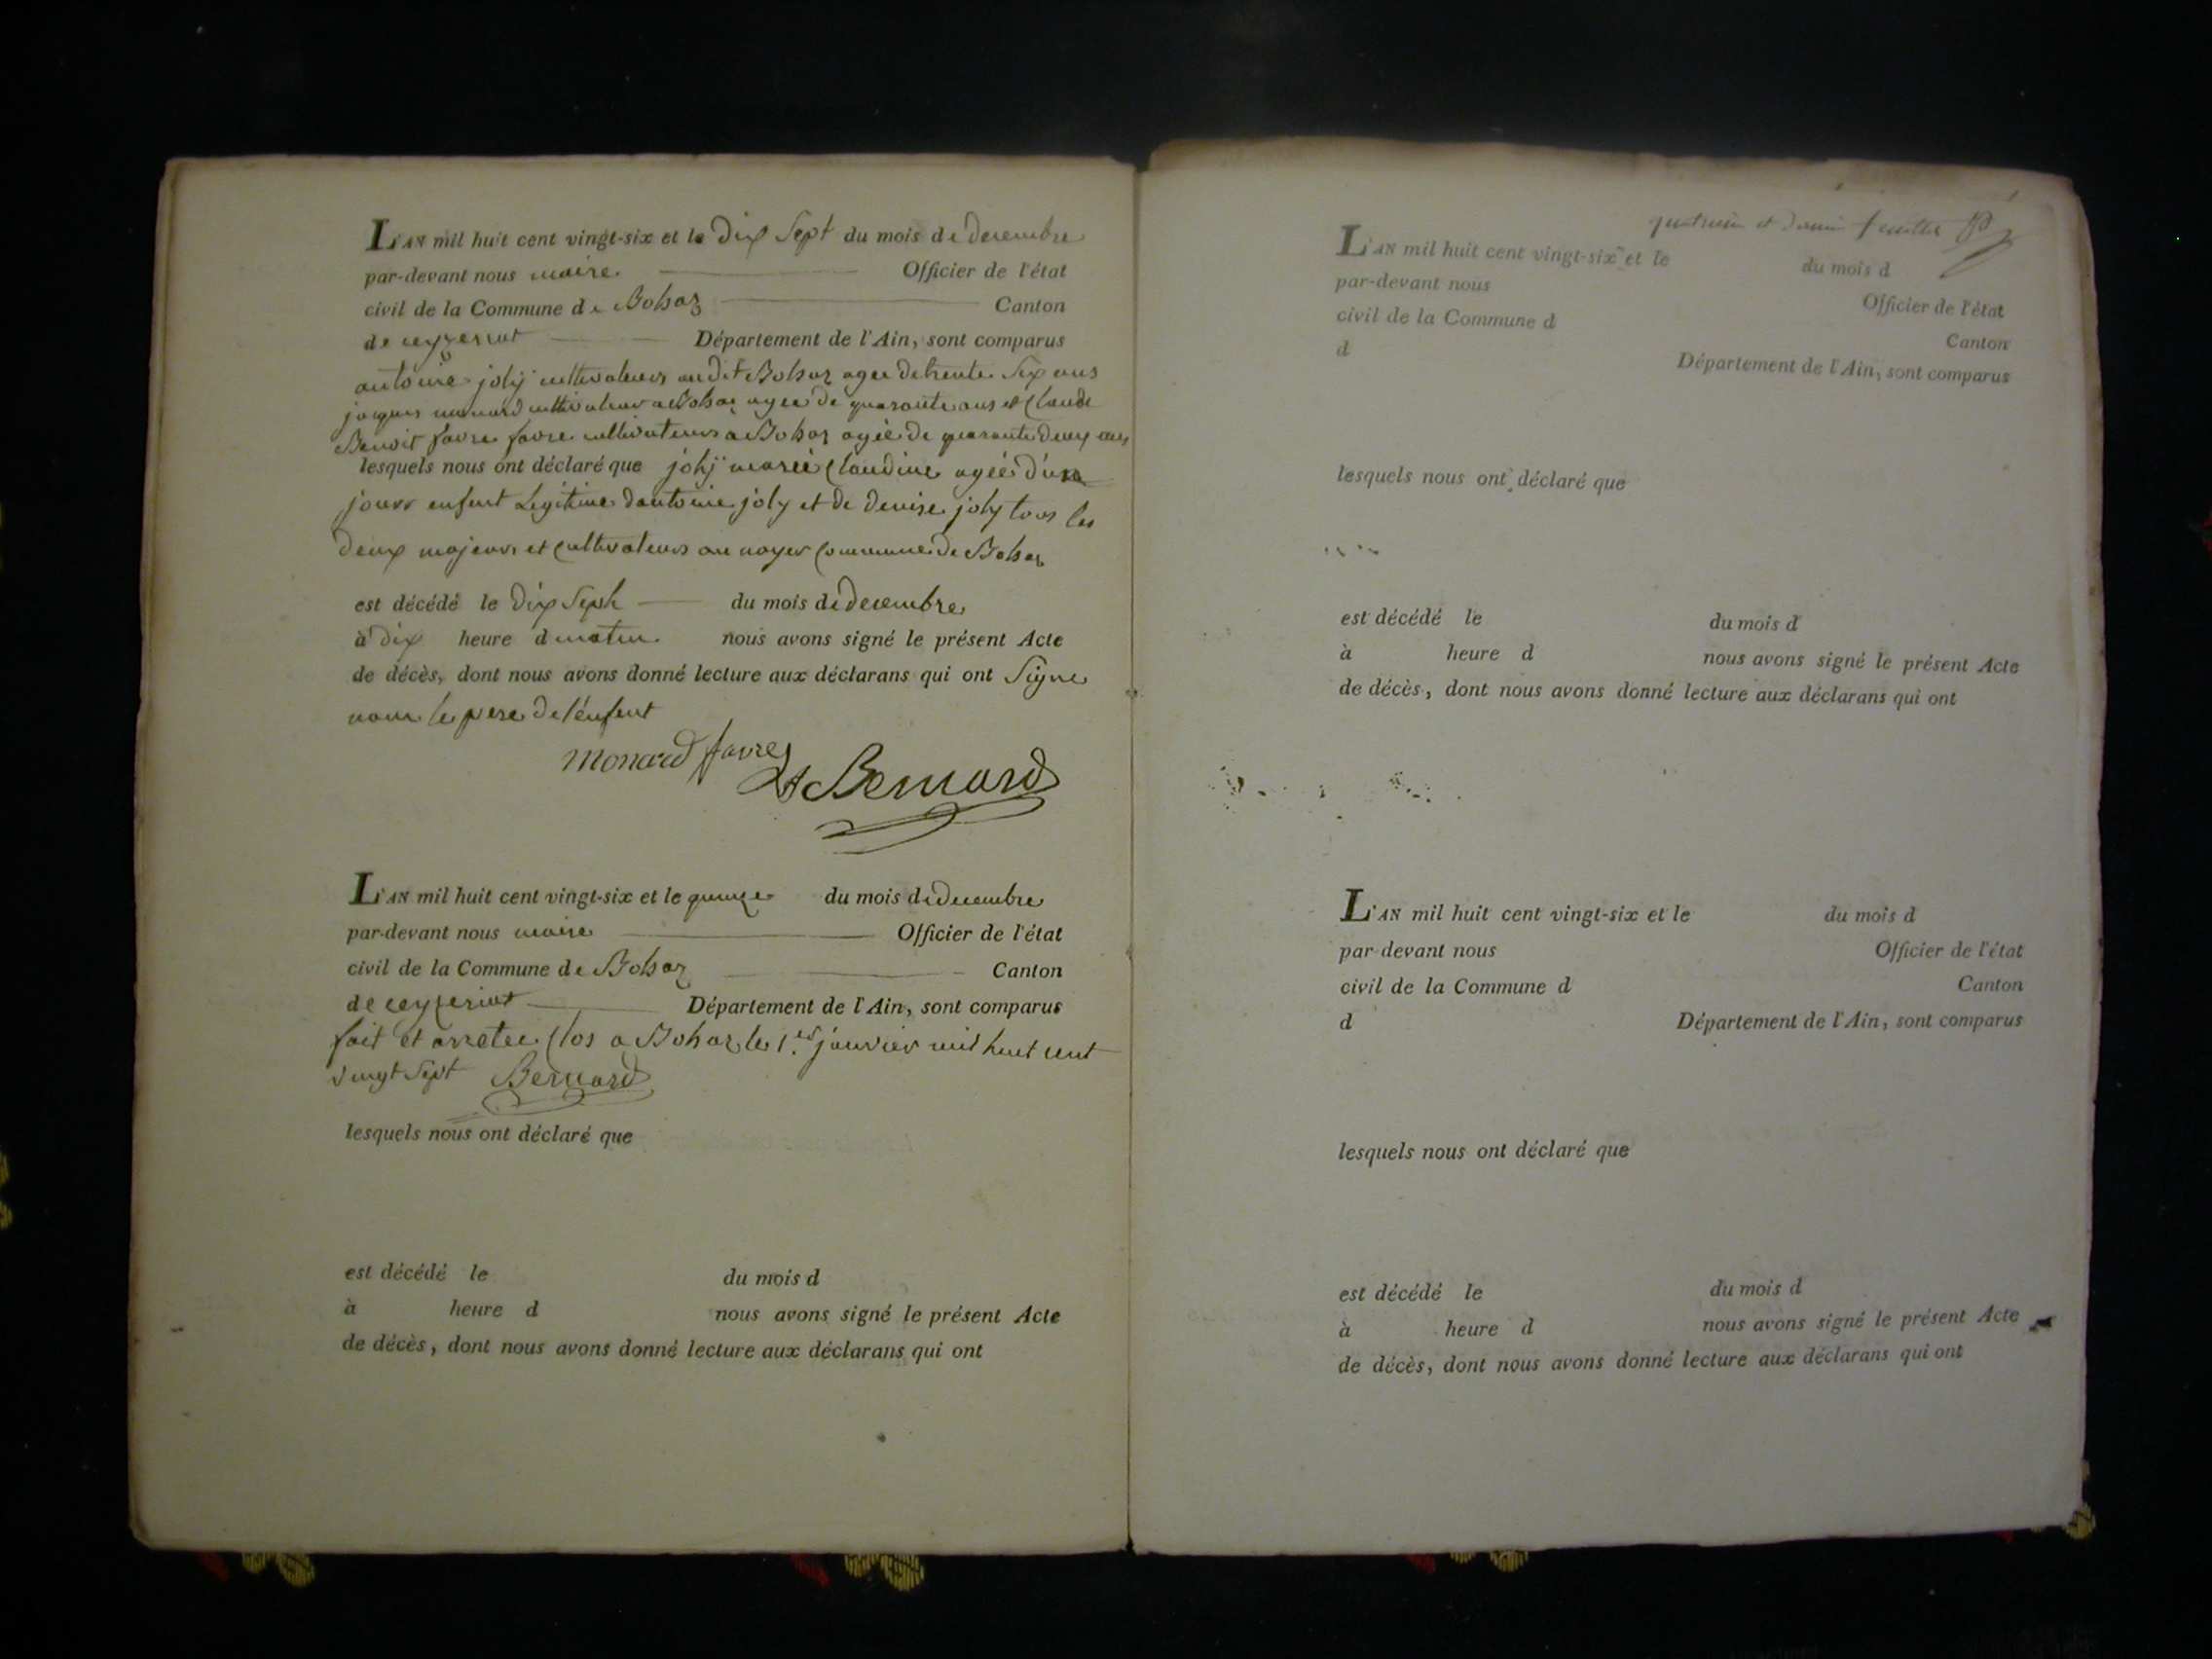 L'AN mil huit cent vingt-six et le dix Sept du mois de decembre
par-devant nous maire Officier de l'état
civil de la Commune de Bohaz Canton
de ceyzeriat Département de l'Ain, sont comparus
antoine joly cultivateurs audit Bohaz agee de trente Six ans
jaques monard cultivateur a Bohaz agee de quarante ans et Claude
Benoit favre favre cultivateurs a Bohaz agée de quarante deux ans
lesquels nous ont déclaré que joly marie Claudine agée d'un
jours enfent Legitime dantoine joly et de denise joly tous les
deux majeurs et Cultivateurs au noyer Commune de Bohaz
est décédé le dix Sept du mois de decembre
à dix heure d matin nous avons signé le présent Acte
de décès, dont nous avons donné lecture aux déclarans qui ont Signe
non le pere de l'énfent
monard favre
Bernard
L'AN mil huit cent vingt-six et le quinze du mois de decembre
par-devant nous maire Officier de l'état
civil de la Commune de Bohaz Canton
de ceyzeriat Département de l'Ain, sont comparus
fait et arretee Clos a Bohaz le 1.er janvier mil huit cent
vingt Sept Bernard
lesquels nous ont déclaré que
est décédé le du mois d
à heure d nous avons signé le présent Acte
de décès, dont nous avons donné lecture aux déclarans qui ont
et feuillet
L'AN mil huit cent vingt-six et le du mois d
par-devant nous Officier de l'état
civil de la Commune d Canton
d Département de l'Ain, sont comparus
lesquels nous ont déclaré que
est décédé le du mois d
à heure d nous avons signé le présent Acte
de décès, dont nous avons donné lecture aux déclarans qui ont
L'AN mil huit cent vingt-six et le du mois d
par-devant nous Officier de l'état
civil de la Commune d Canton
d Département de l'Ain, sont comparus
lesquels nous ont déclaré que
est décédé le du mois d
à heure d nous avons signé le présent Acte
de décès, dont nous avons donné lecture aux déclarans qui ont